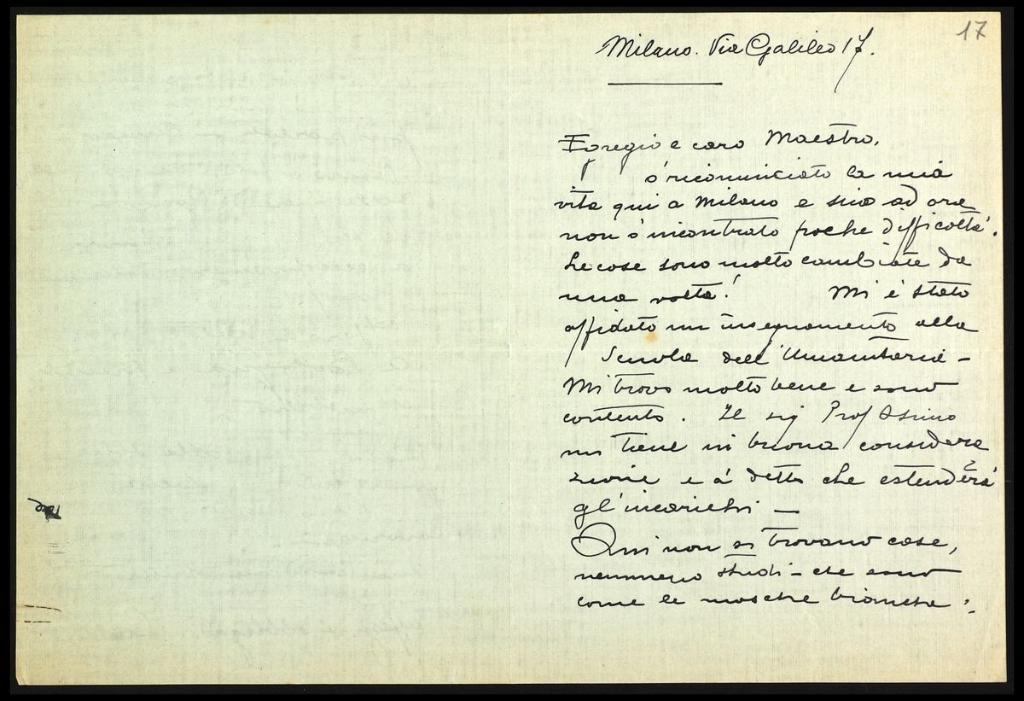 17
Milano. Via Galileo 17.
Egregio e caro Maestro,
ò ricominciato la mia
vita qui a Milano e sino ad ora
non ò incontrato poche difficoltà.
Le cose sono molto cambiate da
una volta! Mi è stato
affidato un insegnamento alla
Scuola dell'Umanitaria –
Mi trovo molto bene e sono
contento. Il sig Prof
mi tiene in buona considera
zione e à detto che estenderà
gl'incarichi –
Qui non si trovano case,
nemmeno studi – che sono
come le mosche bianche